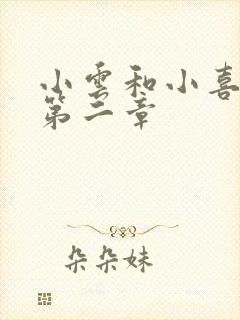 小雲和小喜
第二章
朵朵妹